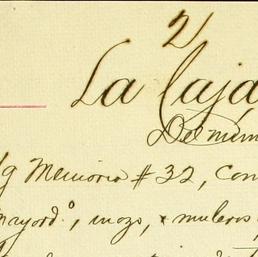 2
La Caja
Del mism
/g Memoria # 32, con
mayord.º, mozo, & muleros